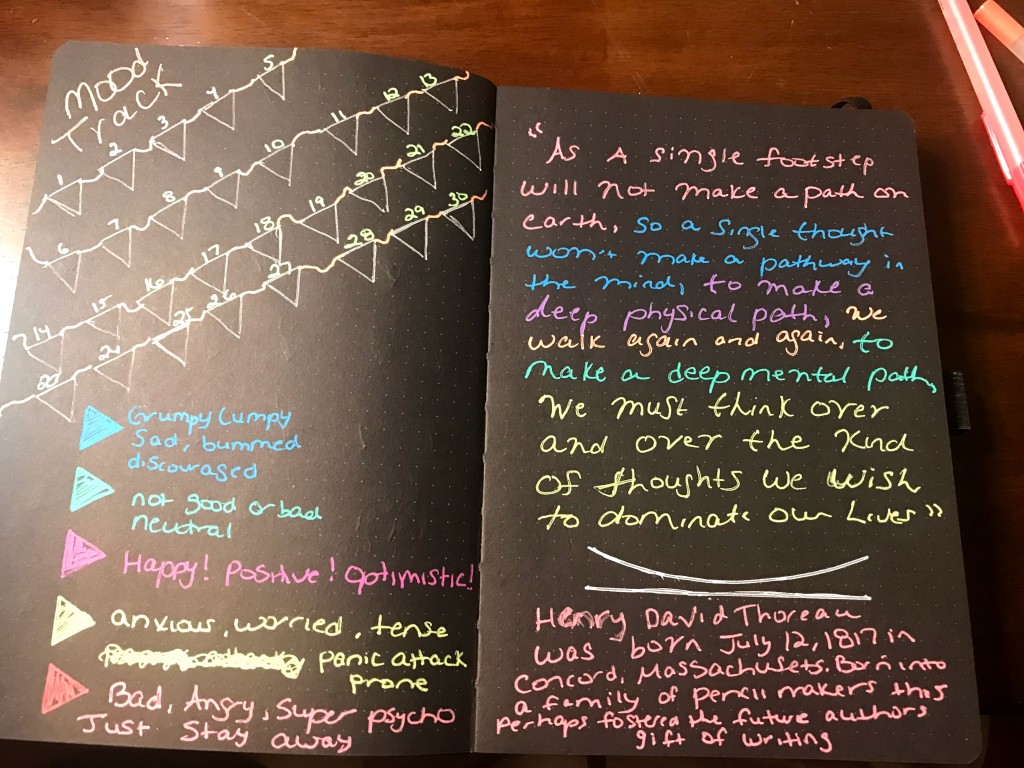 Mood
Track
1 2 3 4 5
6 7 8 9 10 11 12 13
14 15 16 17 18 19 20 21 22
23 24 25 26 27 28 29 30
Grumpy Lumpy
Sad, bummed
discouraged
not good or bad
neutral
Happy! Positive! Optimistic!
anxious, worried, tense
panic attack
prone
Bad, Angry, Super psycho
Just Stay away
"As a single footstep
will not make a path on
earth, so a single thought
won't make a pathway in
the mind, to make a
deep physical path, we
walk again and again, to
make a deep mental path,
We must think over
and over the kind
of thoughts we wish
to dominate our Lives"
Henry David Thoreau
was born July 12, 1817 in
Concord, Massachusets. Born into
a family of pencil makers this
perhaps fostered the future authors
gift of writing